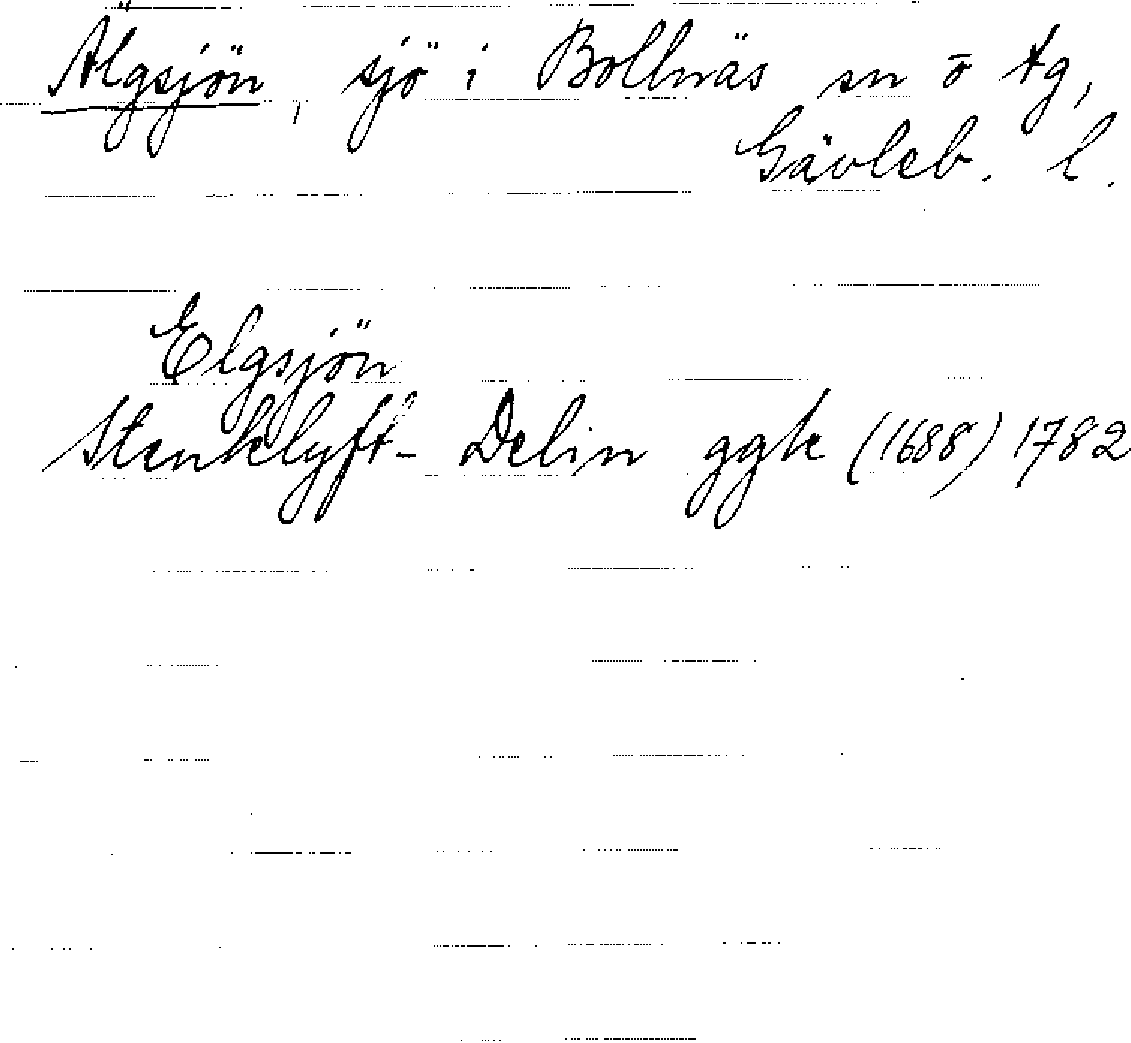 Älgsjön, sjö i Bollnäs sn o tg,
Gävleb. l.
Elgsjön
Stenklyft- Delin ggk (1688) 1782